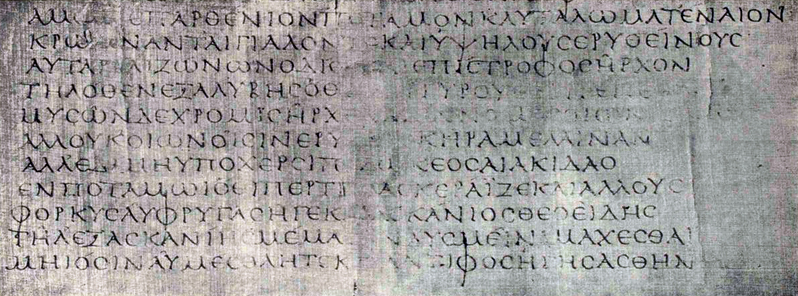 ΑΜ ΕΠΑΡΘΕΝΙΟΝΠ ΑΜΟΝΚΛΥΤΑΔΩΜΑΤΕΝΑΙΟΝ
ΚΡΩ ΝΑΝΤΑΙΓΙΑΛΟΝ ΚΑΙΥΨΗΛΟΥϹΕΡΥΘΕΙΝΟΥϹ
ΑΥΤΑΡ ΛΙΖΩΝΩΝΟΔΙΟ ΕΠΙϹΤΡΟΦΟϹΗΡΧΟΝ
ΤΗΛΟΘΕΝΕΞΑΛΥΒΗϹΟΘΕ ΓΥΡΟΥ
ΜΥϹΩΝΔΕΧΡΟΜΙϹΗΡΧ
ΑΛΛΟΥΚΟΙΩΝΟΙϹΙΝΕΡΥ ΚΗΡΑΜΕΛΑΙΝΑΝ
ΑΛΛΕΔ ΜΗΥΠΟΧΕΡϹΙΠ ΚΕΟϹΑΙΑΚΙΔΑΟ
ΕΝΠΟΤΑΜΩΙΟΘΙΠΕΡΤΡ ΑϹΚΕΡΑΙΖΕΚΑΙΑΛΛΟΥϹ
ΦΟΡΚΥϹΑΥΦΡΥΓΑϹΗΓΕΚ ΚΑΝΙΟϹΘΕΟΕΙΔΗϹ
ΤΗΛΕΞΑϹΚΑΝΙΗϹΜΕΜΑ ΥϹΜΕΙΝΙΜΑΧΕϹΘΑΙ
ΜΗΙΟϹΙΝΑΥΜΕϹΘΛΗϹΤΕΚ ΝΤΙΦΟϹΗΓΗϹΑϹΘΗΝ